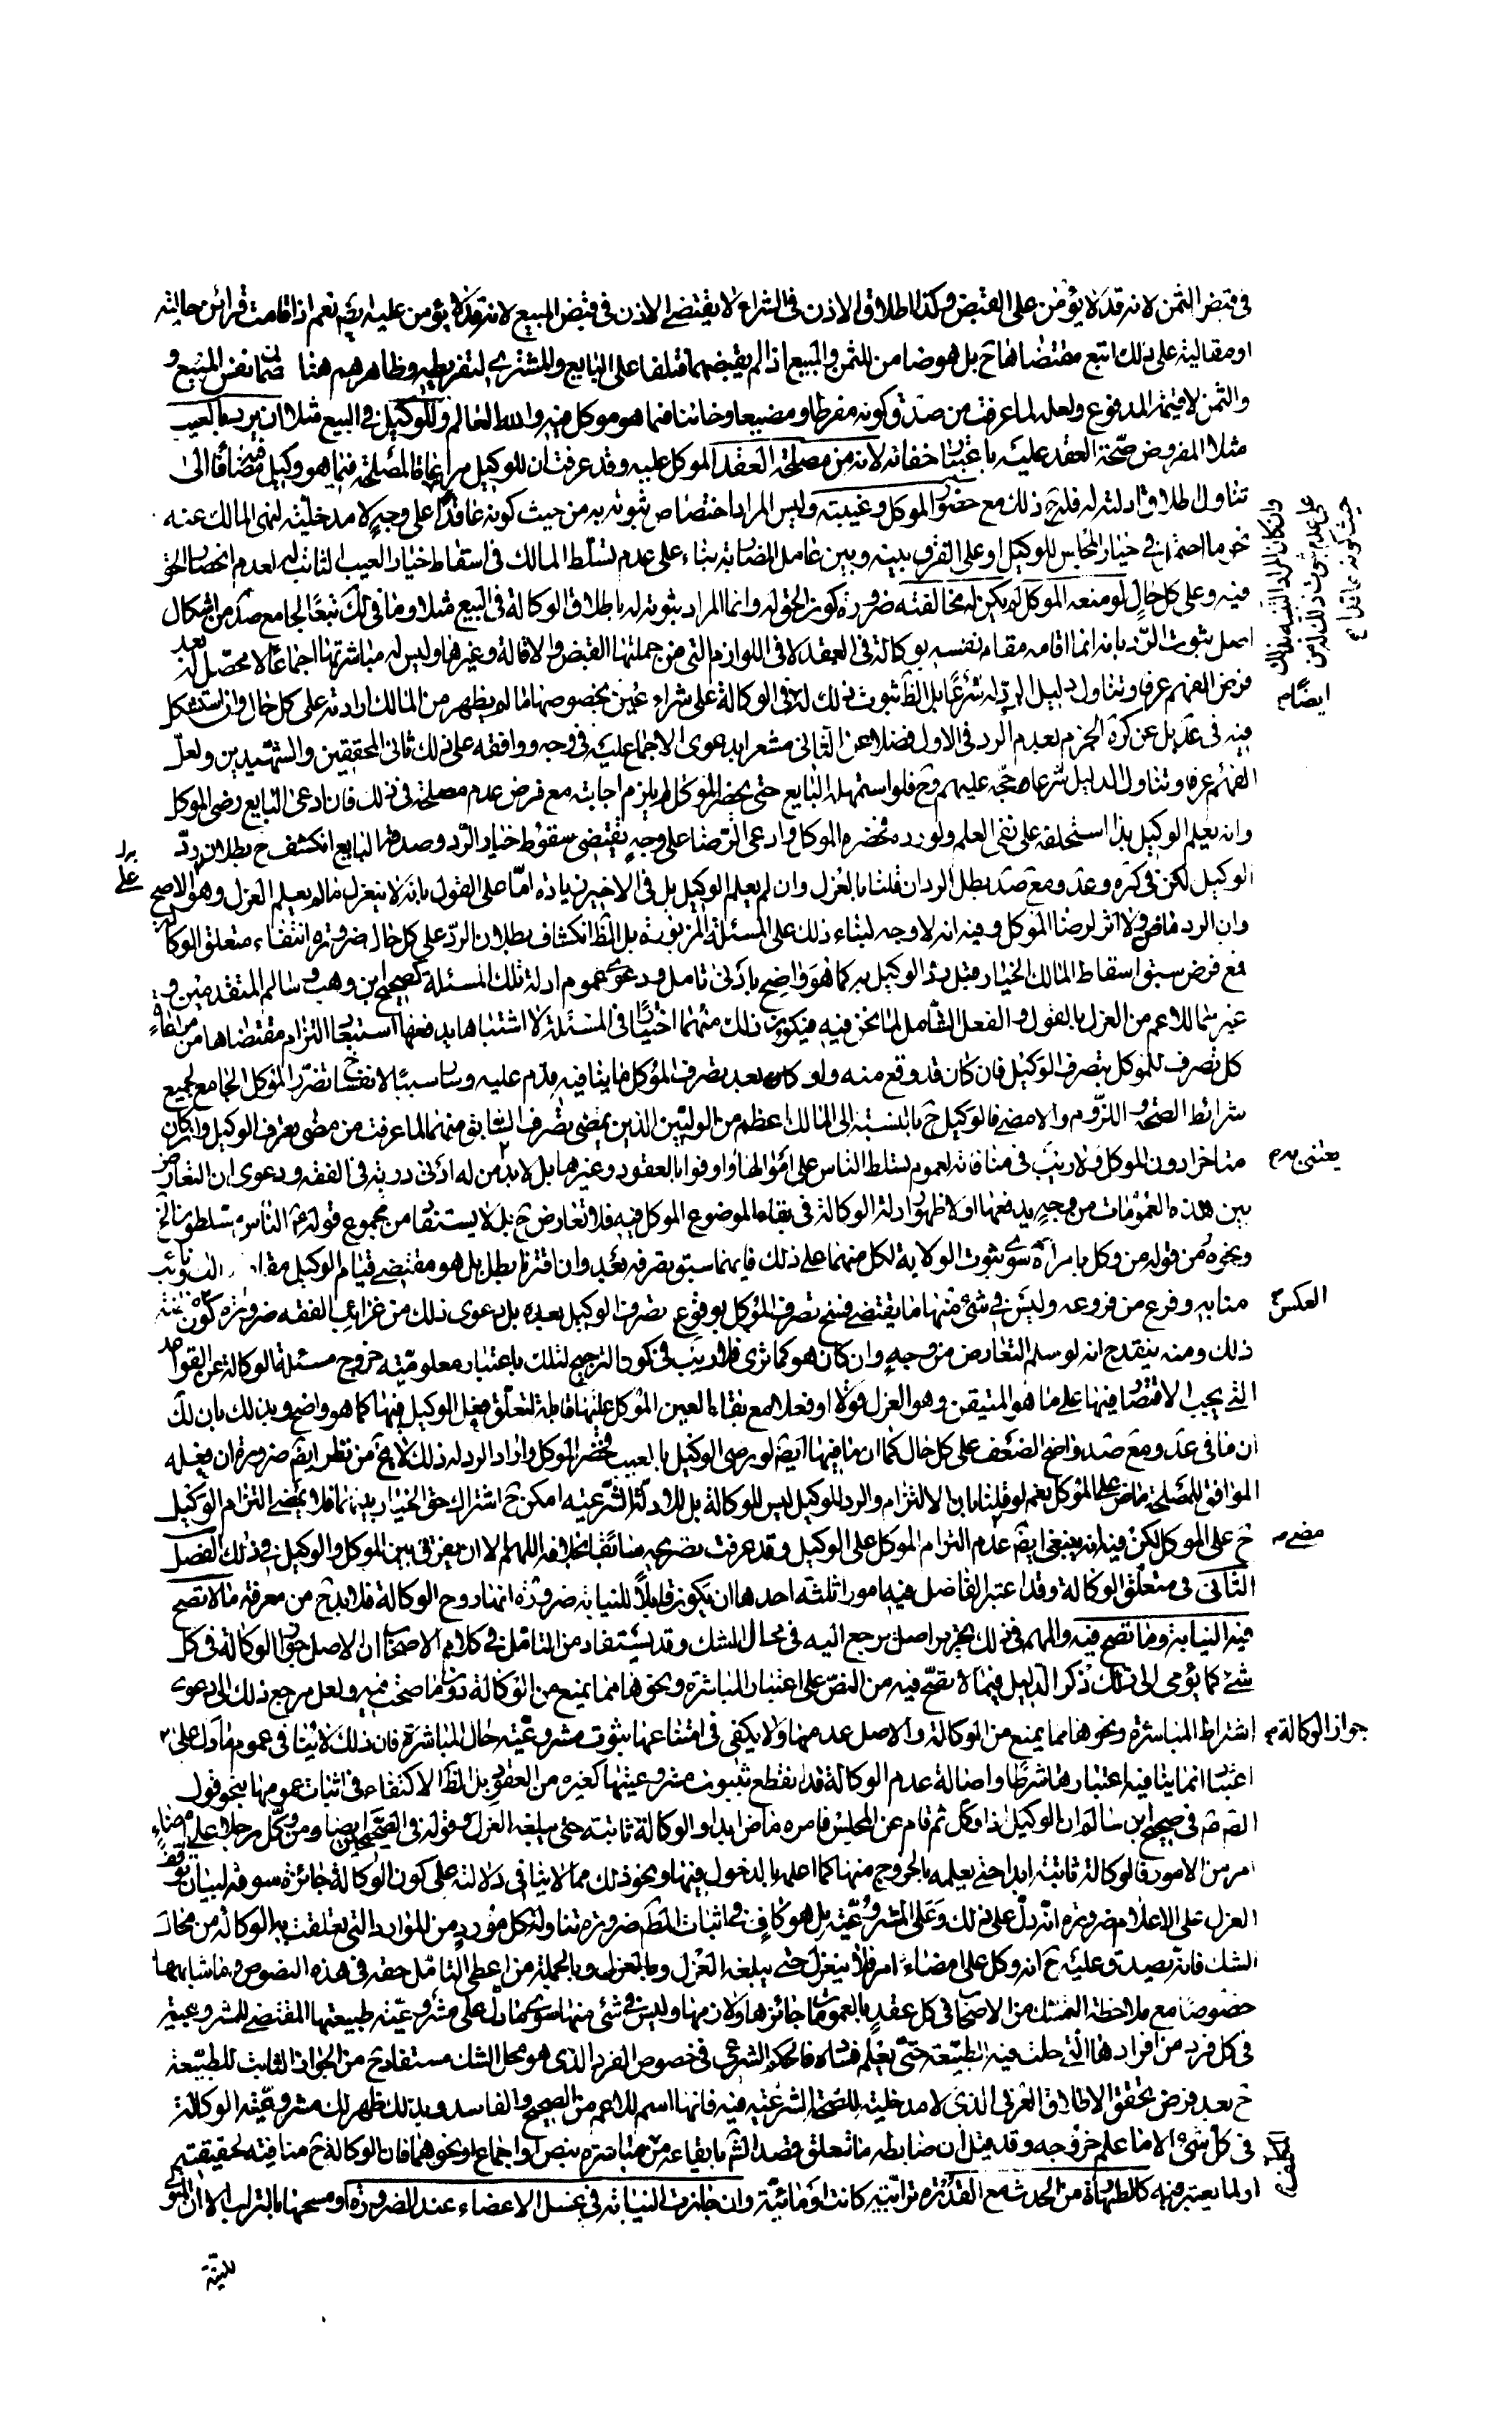 في قبض الثمن لانه قد لا يؤمن على القبض وكذا اطلاق الاذن في الشراء لا يقتضي الاذن في قبض المبيع لانه قد لا يؤمن عليه نعم اذا قامت قرائن حالية
او مقالية على ذلك اتبع مقتضاها ح بل هو ضامن للثمن والمبيع اذا لم يقبضهما فتلفا على البايع والمشتري لتفريطه وظاهرهم هنا ضمان نفس المبيع و
والثمن لا قيمة المدفوع ولعله لما عرفت من صدق كونه مفرطا ومضيعا وخائنا فيما هو موكل فيه والله العالم وللوكيل في البيع مثلا ان يرد بالعيب
مثلا المفروض صحة العقد عليه باعتبار خفائه لانه من مصلحة العقد الموكل عليه وقد عرفت ان للوكيل مراعاة المصلحة فيما هو وكيل فيه مضافا الى
تناول اطلاق ادلته له فله ح ذلك مع حضور الموكل وغيبته وليس المراد اختصاص ثبوته به من حيث كونه عاقدا على وجه لا مدخلية لنهي المالك عنه
نحو ما احتملناه في خيار المجلس للوكيل او على الفرق بينه وبين عامل المضاربة بناء على عدم تسلط المالك في اسقاط خيار العيب الثابت له لعدم انحصار الحق
فيه وعلى كل حال لو منعه الموكل لم يكن له مخالفته ضرورة كون الحق له وانما المراد ثبوته له باطلاق الوكالة في البيع مثلا وما في لك تبعا لجامع صد من اشكال
اصل ثبوت الرد بانه انما اقامه مقام نفسه بوكالة في العقد لا في اللوازم التي من جملتها القبض والاقالة وغيرها وليس له مباشرتها اجماعا لا محصل له بعد
فرض الفهم عرفا وتناول دليل الرد له شرعا بل الظ ثبوت ذلك له في الوكالة على شراء عين بخصوصها ما لم يظهر من المالك ارادته على كل حال وان استشكل
فيه في عد بل عن كره الجزم بعدم الرد في الاول فضلا عن الثاني مشعرا بدعوى الاجماع عليه في وجه ووافقه على ذلك ثاني المحققين والشهيدين ولعل
الفهم عرفا وتناول الدليل شرعا حجة عليهم وح فلو استمهله البايع حتى يحضر الموكل لم يلزم اجابته مع فرض عدم مصلحة في ذلك فان ادعى البايع رضى الموكل
وانه يعلم الوكيل بذا استحلفه على نفي العلم ولو رده فحضر الموكل وادعى الرضا على وجه يقتضي سقوط خيار الرد وصدقه البايع انكشف ح بطلان رد
الوكيل لكن في كره وعد ومع صد بطل الرد ان قلنا بالعزل وان لم يعلم الوكيل بل في الاخير زيادة اما على القول بانه لا ينعزل ما لم يعلم العزل وهو الاصح
وان الرد ماض ولا اثر لرضا الموكل وفيه انه لا وجه لبناء ذلك على المسئلة المزبورة بل الظ انكشاف بطلان الرد على كل حال ضرورة انتفاء متعلق الوكالة
مع فرض سبق اسقاط المالك الخيار قبل رد الوكيل به كما هو واضح بادنى تامل ودعوى عموم ادلة تلك المسئلة كصحيح ابن وهب وسالم المتقدمين و
غيرهما للاعم من العزل بالقول والفعل الشامل لما نحن فيه فيكون ذلك منهما اختيارا في المسئلة لا اشتباها يدفعها استبعاد التزام مقتضاها من الغاء
كل تصرف للموكل بتصرف الوكيل فان كان قد وقع منه ولو كان بعد تصرف الموكل ما ينافيه قدم عليه وصار سببا لانفساخ تصرف الموكل الجامع لجميع
شرائط الصحة واللزوم والامضاء فالوكيل ح بالنسبة الى المالك اعظم من الوليين الذين يمضي تصرف السابق منهما لما عرفت من مضي تصرف الوكيل وان كان
متاخرا دون الموكل ولا ريب في منافاته لعموم تسلط الناس على اموالها واوفوا بالعقود وغيرها بل لا يدين من له ادنى دربة في الفقه ودعوى ان التعارض
بين هذه العمومات من وجه يدفعها اولا ظهور ادلة الوكالة في بقاء الموضوع الموكل فيه فلا تعارض ح بل لا يستفاد من مجموع قوله ع الناس مسلطون الخ
ونحوه من قوله من وكل بامراة سوى ثبوت الولاية لكل منهما على ذلك فايهما سبق تصرفه بعد وان اقترنا بطل بل هو مقتضى قيام الوكيل مقام نائب
منابه وفرع من فروعه وليس في شئ منها ما يقتضي فسخ تصرف الموكل بوقوع تصرف الوكيل بعده بل دعوى ذلك من غرائب الفقه ضرورة كون
ذلك ومنه ينقدح انه لو سلم التعارض من وجه وان كان هو كما ترى فلا ريب في كون الترجيح لتلك باعتبار معلومية خروج مسئلة الوكالة عن القواعد
التي يجب الاقتصار فيها على ما هو المتيقن وهو العزل قولا او فعلا مع بقاء العين الموكل عليها قابلة لتعلق فعل الوكيل فيها كما هو واضح وبذلك بان لك
ان ما في عد ومع صد واضح الضعف على كل حال كما ان ما فيها ايضا لو رضي الوكيل بالعيب فحضر الموكل واراد الرد له ذلك لا يخ من نظر ايضا ضرورة ان فعله
الموافق للمصلحة ماض على الموكل نعم لو قلنا بان الالتزام والرد للوكيل ليس للوكالة بل للادلة الشرعية امكن ح اشتراك حق الخيار بينهما فلا يمضي التزام الوكيل
ح على الموكل لكن فيه انه ينبغي ايضا عدم التزام الموكل على الوكيل وقد عرفت تصريحه سابقا بخلافه اللهم الا ان يفرق بين الموكل والوكيل في ذلك الفصل
الثاني في متعلق الوكالة وقد اعتبر الفاضل فيه امورا ثلثة احدها ان يكون قابلا للنيابة ضرورة انها روح الوكالة فلا بد ح من معرفة ما لا تصح
فيه النيابة وما تصح فيه والمهم في ذلك تحرير اصل يرجع اليه في محال الشك وقد يستفاد من التامل في كلام الاصحاب ان الاصل جواز الوكالة في كل
شئ كما يومي الى ذلك ذكر الدليل فيما لا تصح فيه من النص على اعتبار المباشرة ونحوها مما يمنع من الوكالة دون ما صحت فيه ولعل مرجع ذلك الى دعوى
اشتراط المباشرة ونحوها مما يمنع من الوكالة والاصل عدمها ولا يكفي في امتناعها ثبوت مشروعيته حال المباشرة فان ذلك لا ينافي عموم ما دل على
اعتبارا انما ينافيه اعتبارها شرطا واصالة عدم الوكالة قد انقطع بثبوت مشروعيتها كغيره من العقود بل الظ الاكتفاء في اثبات عمومها بنحو قول
الصادق في صحيح ابن سالم ان الوكيل اذا وكل ثم قام عن المجلس فامره ماض ابدا والوكالة ثابتة حتى يبلغه العزل وقوله في الصحيح ايضا ومن وكل رجلا على امضاء
امر من الامور فالوكالة ثابتة ابدا حتى يعلمه بالخروج منها كما اعلمه بالدخول فيها ونحو ذلك مما لا ينافي دلالته على كون الوكالة جائزة سوقه لبيان توقف
العزل على الاعلام ضرورة انه دل على ذلك وعلى المشروعية بل هو كاف في اثبات المط ضرورة تناوله كل مورد من الموارد التي تعلقت به الوكالة من محال
الشك فانه يصدق عليه ح انه وكل على امضاء امر فلا ينعزل حتى يبلغه العزل وبالجملة من اعطى التامل حقه في هذه النصوص وما شابهها
خصوصا مع ملاحظة التمسك من الاصحاب في كل عقد بالعموم جائزها ولازمها وليس في شئ منها سوى ما دل على مشروعية طبيعتها المقتضي للمشروعية
في كل فرد من افرادها التي حلت فيه الطبيعة حتى يعلم فساده فالحكم الشرعي في خصوص الفرد الذي هو محل الشك مستفاد ح من الجواز الثابت للطبيعة
ح بعد فرض تحقق الاطلاق العرفي الذي لا مدخلية للصحة الشرعية فيه فانها اسم للاعم من الصحيح والفاسد وبذلك ظهر لك مشروعية الوكالة
في كل شئ الا ما علم خروجه وقد قيل ان ضابطه ما تعلق قصد الشارع بايقاعه من مباشرة بنص او اجماع او نحوهما فان الوكالة ح منافية لحقيقته
او لما يعتبر فيه كالطهارة من الحدث مع القدرة ترابية كانت او مائية وان جازت النيابة في غسل الاعضاء عند الضرورة او مسحها بالتراب الا ان المتولي
للنية
وان كان المراد التنبيه بذلك
على عدم ثبوت ذلك له من
حيث كونه عاقدا
ايضا
يعتني به
العكس
مضي
جواز الوكالة
المكلف